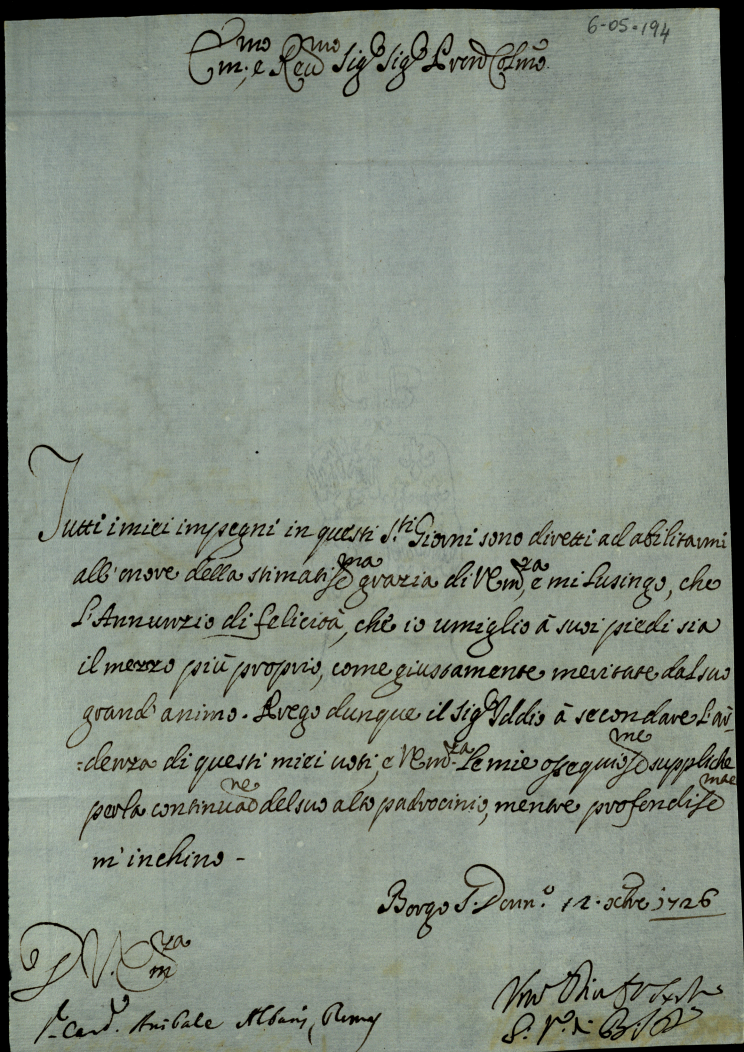 6-05-194
Em.mo e Reu.mo Sig.re Sig.re Pron Col.mo
Tutti i miei impegni in questi S.ti Giorni sono diretti ad abilitarmi
all'onore della stimatis.ma grazia di V. Em.za, e mi lusingo, che
l'Annunzio di felicità, che io umiglio à suoi piedi sia
il mezzo più proprio, come giustamente meritate dal suo
grand'animo. Prego dunque il Sig.re Iddio à secondare l'ar
=denza di questi miei uoti, e V. Em.za le mie ossequios.me suppliche
per la continuao.ne del suo alto padrocinio, mentre profondiss.mae
m'inchino -
Borgo S. Donn.o 12. Xbre 1726
D V. Em.za
S.r Card. Anibale Albani, Roma